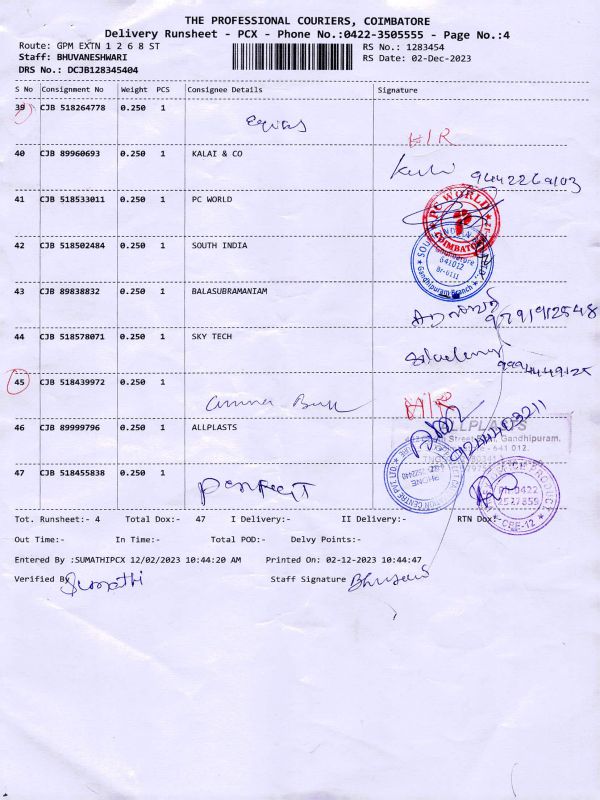 THE PROFESSIONAL COURIERS, COIMBATORE
Delivery Runsheet - PCX - Phone No.:0422-3505555 - Page No.:4
Route: GPM EXTN 1 2 6 8 ST RS No.: 1283454
Staff: BHUVANESHWARI RS Date: 02-Dec-2023
DRS No.: DCJB128345404
S No Consignment No Weight PCS Consignee Details Signature
39 CJB 518264778 0.250 1
H/R
40 CJB 89960693 0.250 1 KALAI & CO
9442269103
41 CJB 518533011 0.250 1 PC WORLD
PC WORLD
COIMBATORE-12
42 CJB 518502484 0.250 1 SOUTH INDIA
Coimbatore
641012
Gandhipuram Branch
43 CJB 89838832 0.250 1 BALASUBRAMANIAM
9791912548
44 CJB 518578071 0.250 1 SKY TECH
9994449125
45 CJB 518439972 0.250 1
H/R
46 CJB 89999796 0.250 1 ALLPLASTS
ALLPLASTS
Gandhipuram,
641 012.
9244403211
47 CJB 518455838 0.250 1
Perfect
PHONE
PH:0422
2527855
CBE-12
Tot. Runsheet:- 4 Total Dox:- 47 I Delivery:- II Delivery:- RTN Dox:-
Out Time:- In Time:- Total POD:- Delvy Points:-
Entered By :SUMATHIPCX 12/02/2023 10:44:20 AM Printed On: 02-12-2023 10:44:47
Verified By Sumathi Staff Signature